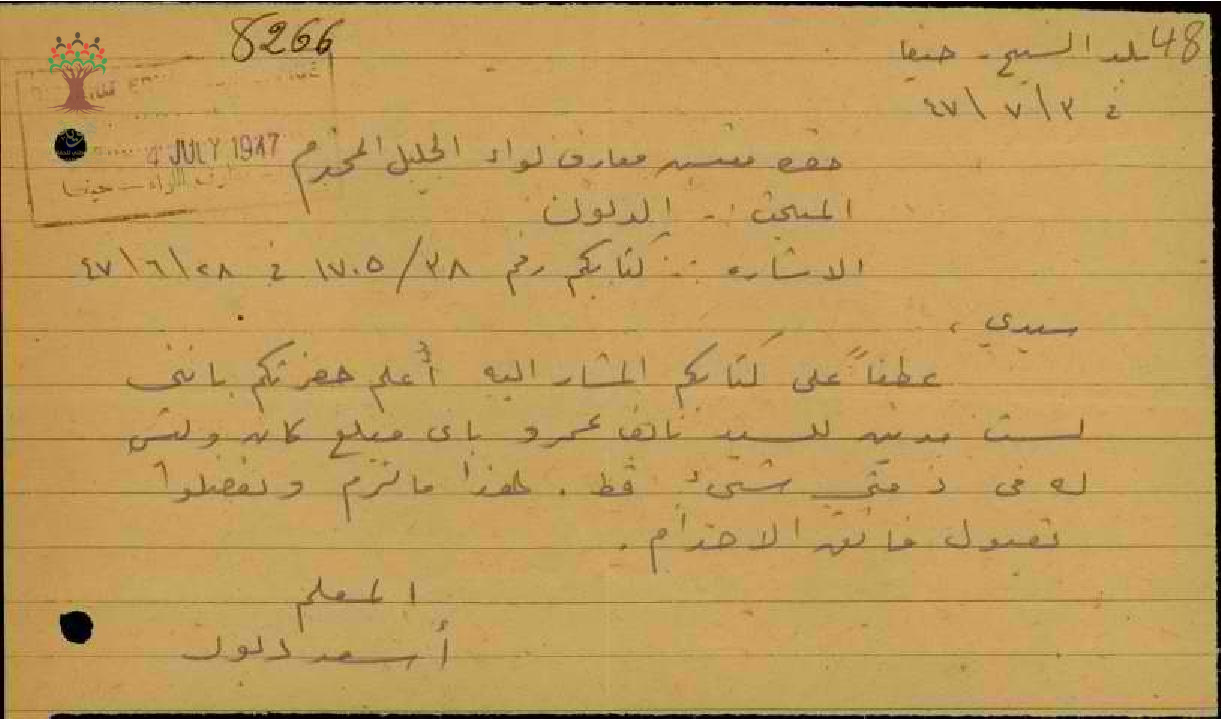 48
8266
بلد الشيخ - حيفا
في ٣/٧/٤٧
4 JULY 1947
معارف اللواء - حيفا
حضرة مفتش معارف لواء الجليل المحترم
المبحث :- الديون
الاشاره :- كتابكم رقم ٣٨/١٧٠٥ في ٢٨/٦/٤٧
سيدي ،
عطفاً على كتابكم المشار اليه أُعلم حضرتكم بانني
لست مدين للسيد نايف عمرو باى مبلغ كان وليس
له في ذمتي شيئ قط . هذا ما لزم وتفضلوا
بقبول فائق الاحترام .
المعلم
أسعد دلول